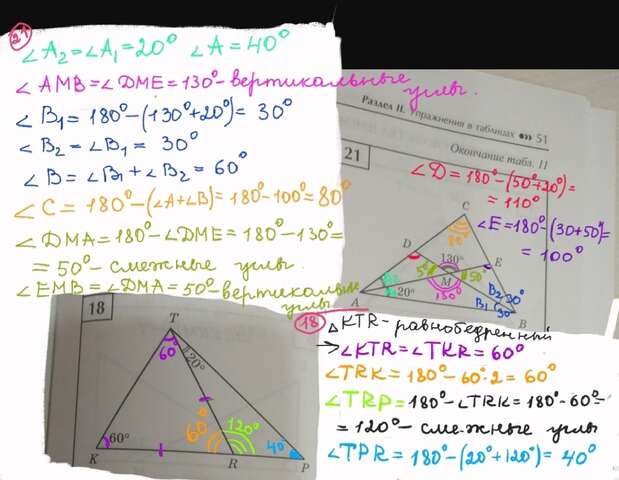 21
∠A₂=∠A₁=20° ∠A=40°
∠AMB=∠DME=130°-вертикальные
углы.
∠B₁=180°-(130°+20°)=30°
∠B₂=∠B₁=30°
∠B=∠B₁+∠B₂=60°
∠C=180°-(∠A+∠B)=180°-100°=80°
∠DMA=180°-∠DME=180°-130°=
=50°-смежные углы.
∠EMB=∠DMA=50°-вертикальные
углы
Раздел II. Упражнения в таблицах ••» 51
Окончание табл. 11
21
∠D=180°-(50°+20°)=
=110°
∠E=180°-(30+50°)=
=100°
C
80°
D
E
130°
50°
50°
M
130°
A
20°
B₂ 30°
B₁
30°
B
18
T
60°
20°
60°
K
60°
120°
R
40°
P
18
△KTR-равнобедренный
→∠KTR=∠TKR=60°
∠TRK=180°-60°·2=60°
∠TRP=180°-∠TRK=180°-60°=
=120°-смежные углы
∠TPR=180°-(20°+120°)=40°